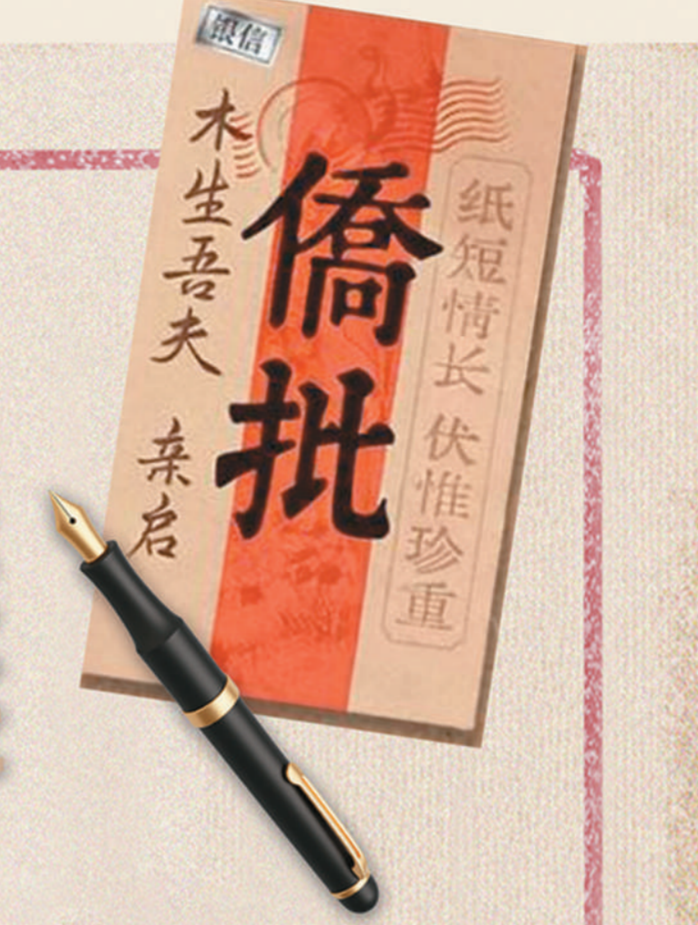 银信
纸短情长 伏惟珍重
僑批
木生吾夫 亲启